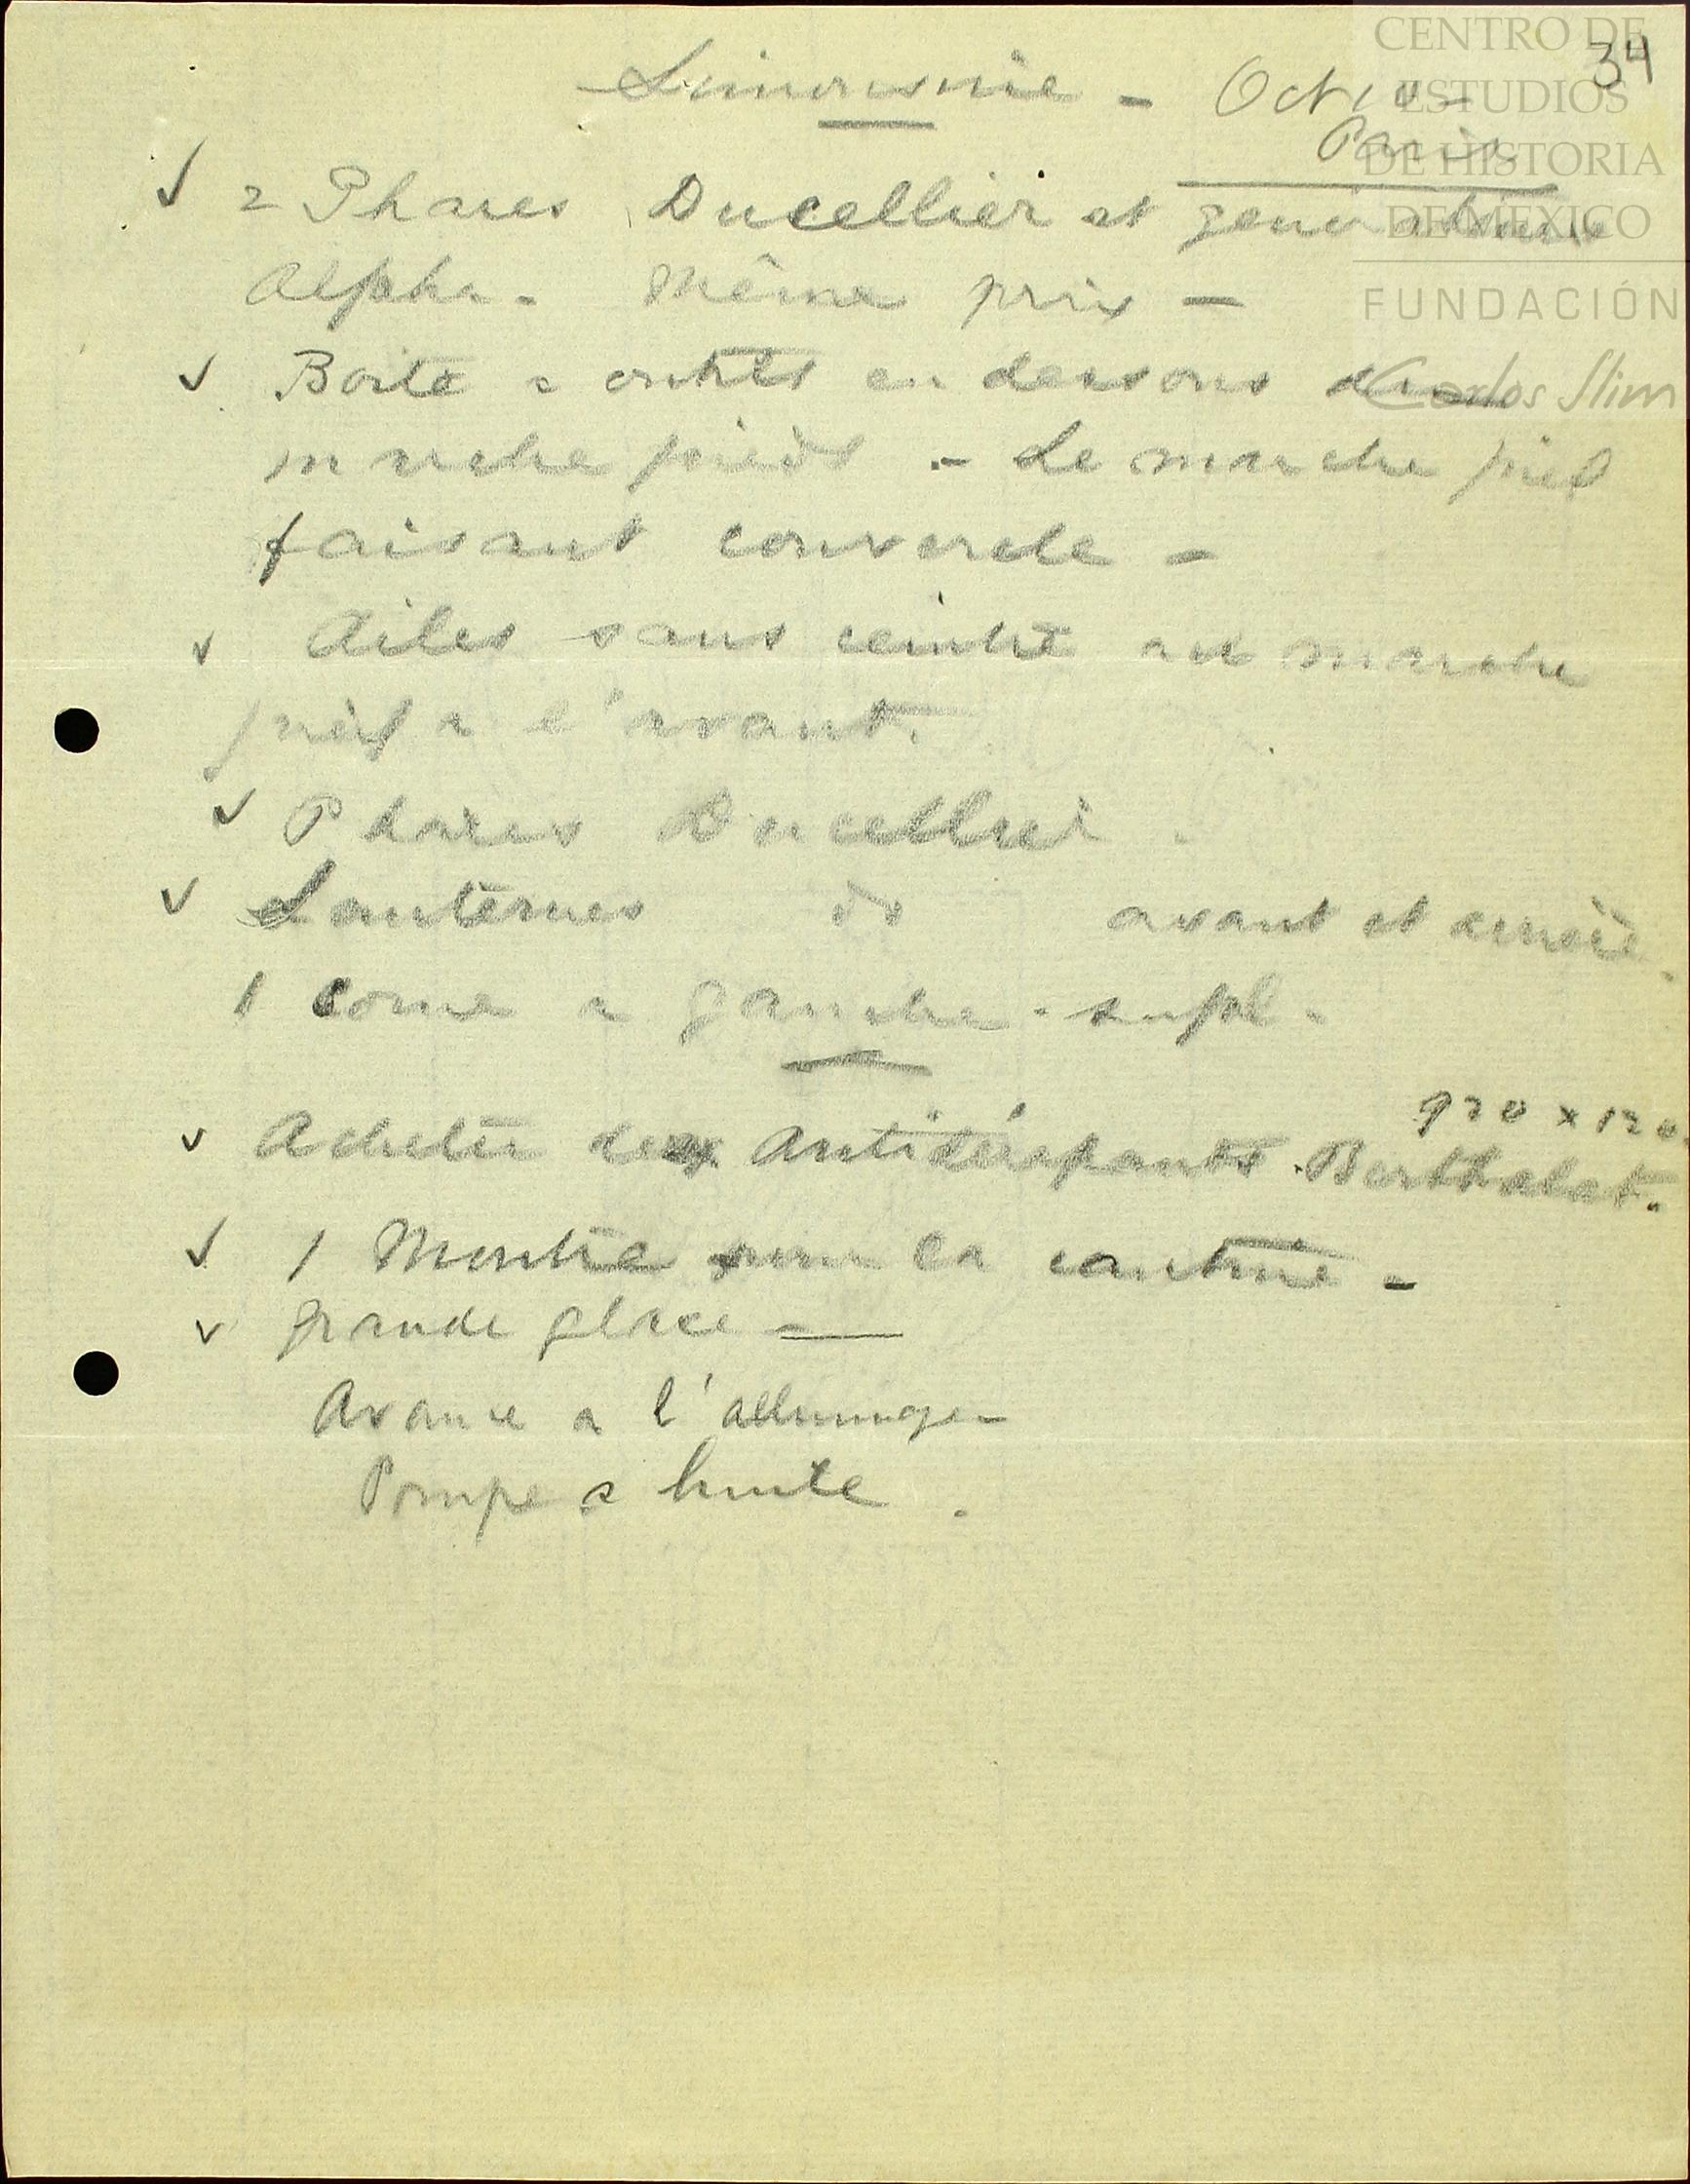 34
Limousine - Oct 10 -
Paris.
✓ 2 Phares Ducellier et generateur
Alpha - Même prix -
✓ Boite a outils en dessous du
marche pieds - Le marche pied
faisant couvercle -
✓ Ailes sans ceintre au marche
pied a l'avant.
✓ Phares Ducellier -
✓ Lanternes do avant et arrière
1 corne a gauche - supl -
920 x 120
✓ Acheter deux Antidérapants Berthalet.
✓ 1 Montre pour la cantine -
✓ grande glace -
Avance a l'allumage -
Pompe a huile .
CENTRO DE
ESTUDIOS
DE HISTORIA
DE MEXICO
FUNDACIÓN
Carlos Slim